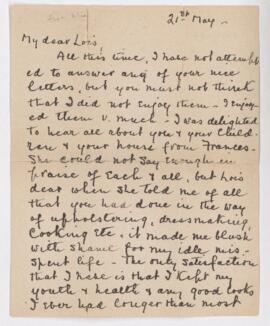 21st May –
My dear Lois,
All this time, I have not attempt
ed to answer any of your nice
letters, but you must not think
that I did not enjoy them – I enjoy
ed them v. much – I was delighted
to hear all about you & your Child
ren & your house from Frances –
She could not say enough in
praise of Each & all, but Lois
dear when she told me of all
that you had done in the way
of upholstering, dressmaking,
Cooking Etc. it made me blush
with Shame for my idle mis-
spent life – The only Satisfaction
that I have is that I kept my
youth & health & any good looks
I Ever had longer than most